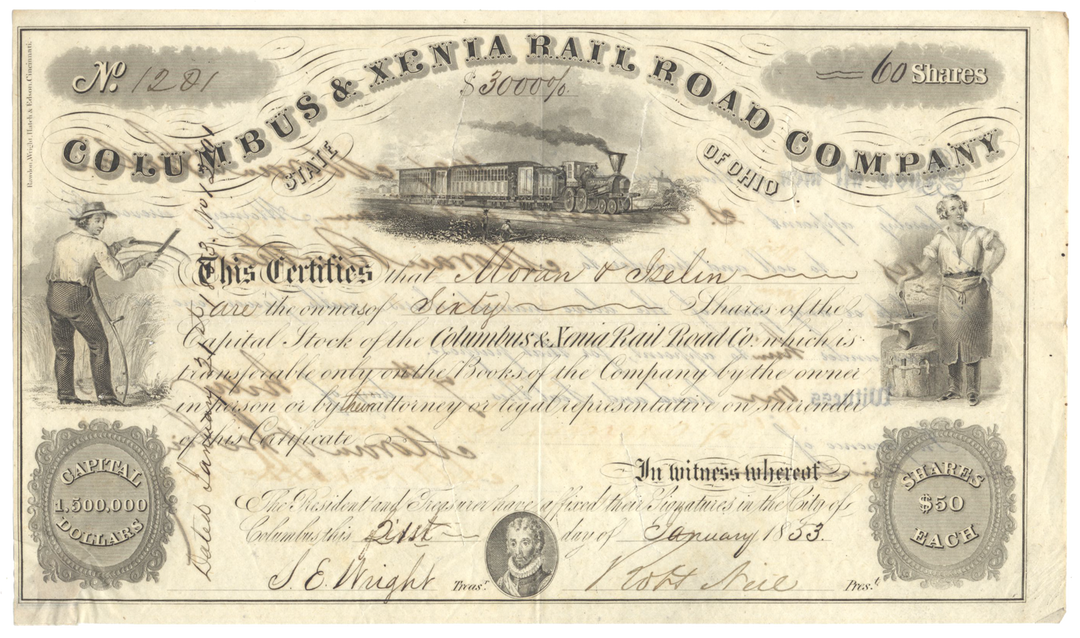 Rawdon, Wright, Hatch & Edson, Cincinnati.
No. 1201
COLUMBUS & XENIA RAIL ROAD COMPANY
60 Shares
$3000%
STATE OF OHIO
This Certifies that Moran & Iselin
are the owners of Sixty Shares of the
Capital Stock of the Columbus & Xenia Rail Road Co. which is
transferable only on the Books of the Company by the owner
in person or by their attorney or legal representative on surrender
of this Certificate
In witness whereof
The President and Treasurer have affixed their Signatures in the City of
Columbus this 21st day of January 1853.
S. E. Wright Treasr.
Robt Neil Prest.
CAPITAL
1,500,000
DOLLARS
SHARES
$50
EACH
Dated January
Witness